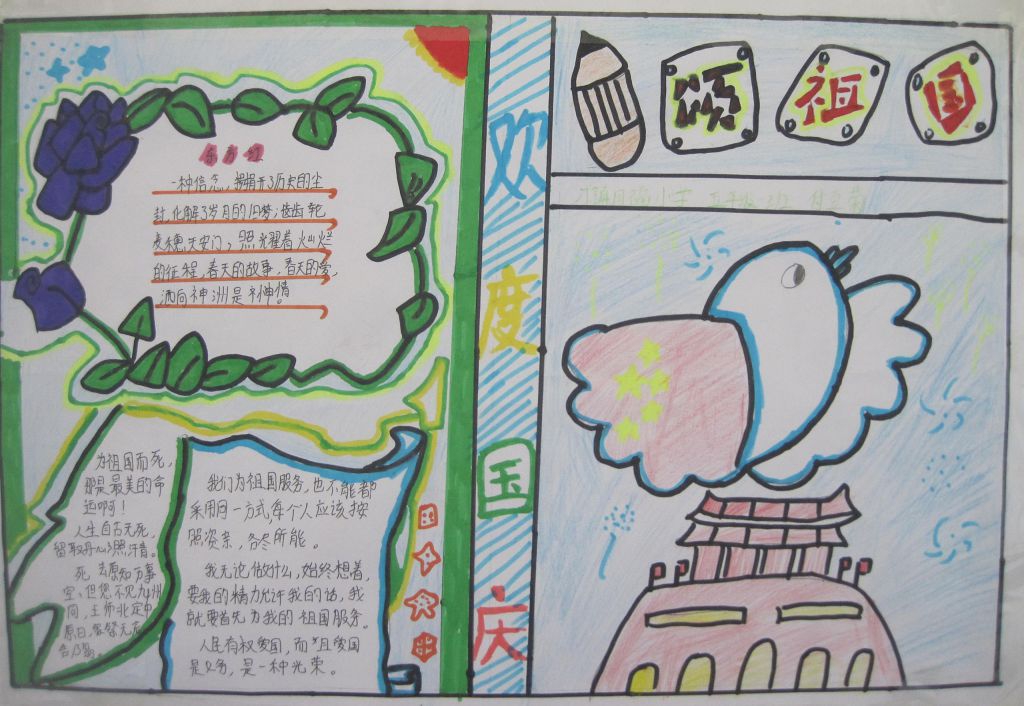 颂祖国
欢度国庆
东方红
一种信念，掀开了历史的尘
封，化解了岁月的旧梦；
天安门，照耀着灿烂
的征程，春天的故事，春天的爱，
洒向神洲是神情。
为祖国而死，
那是最美的命
运啊！
人生自古无死，
留取丹心照汗青。
死去原知万事
空，但悲不见九州
同，王师北定中
原日，家祭无忘
告乃翁。
我们为祖国服务，也不能都
采用同一方式，每个人应该按
照资亲，各尽所能。
我无论做什么，始终想着，
要我的精力允许我的话，我
就要首先为我的祖国服务。
人民有权爱国，而且爱国
是义务，是一种光荣。